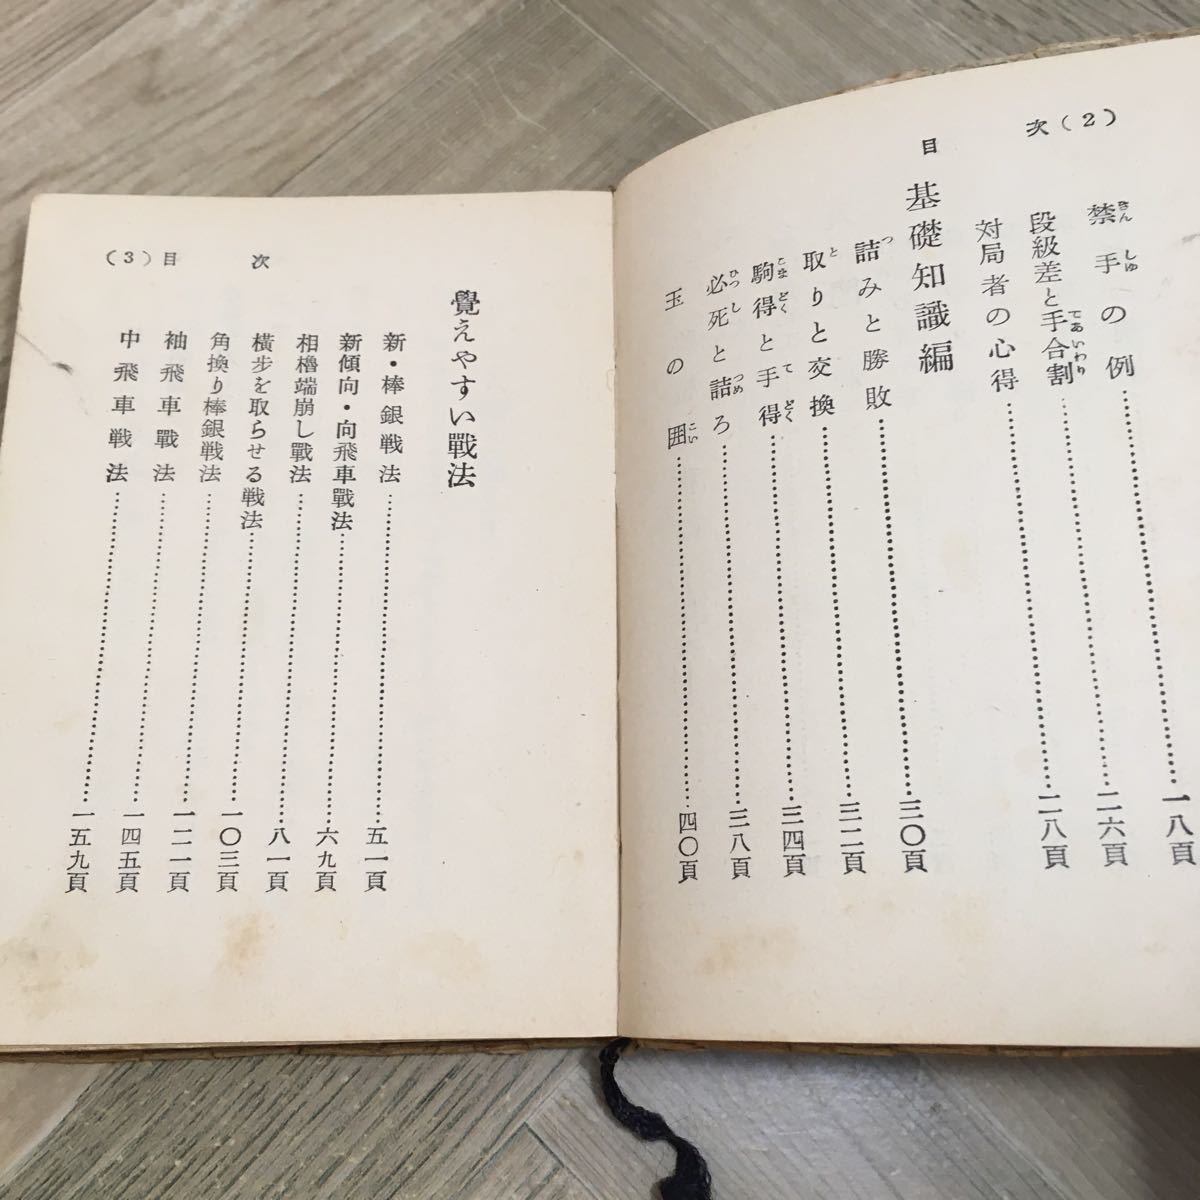 目次(2)
禁手の例……一八頁
段級差と手合割……二六頁
対局者の心得……二八頁
基礎知識編
詰みと勝敗……三〇頁
取りと交換……三二頁
駒得と手得……三四頁
必死と詰ろ……三八頁
玉の囲……四〇頁
(3)目次
覺えやすい戰法
新・棒銀戦法……五一頁
新傾向・向飛車戰法……六九頁
相櫓端崩し戰法……八一頁
横歩を取らせる戦法……一〇三頁
角換り棒銀戦法……一二一頁
袖飛車戰法……一四五頁
中飛車戦法……一五九頁